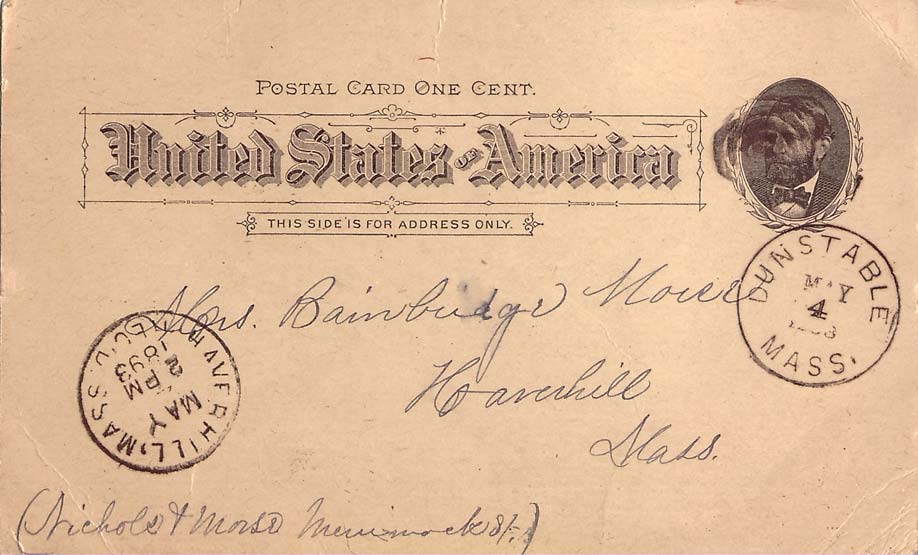 POSTAL CARD ONE CENT.
United States of America
THIS SIDE IS FOR ADDRESS ONLY.
DUNSTABLE
MAY
4
MASS.
Mrs. Bainbridge Morse
Haverhill
Mass.
HAVERHILL, MASS
MAY
2 PM
1893
REC'D.
(Nichols & Morse Merrimack St.)